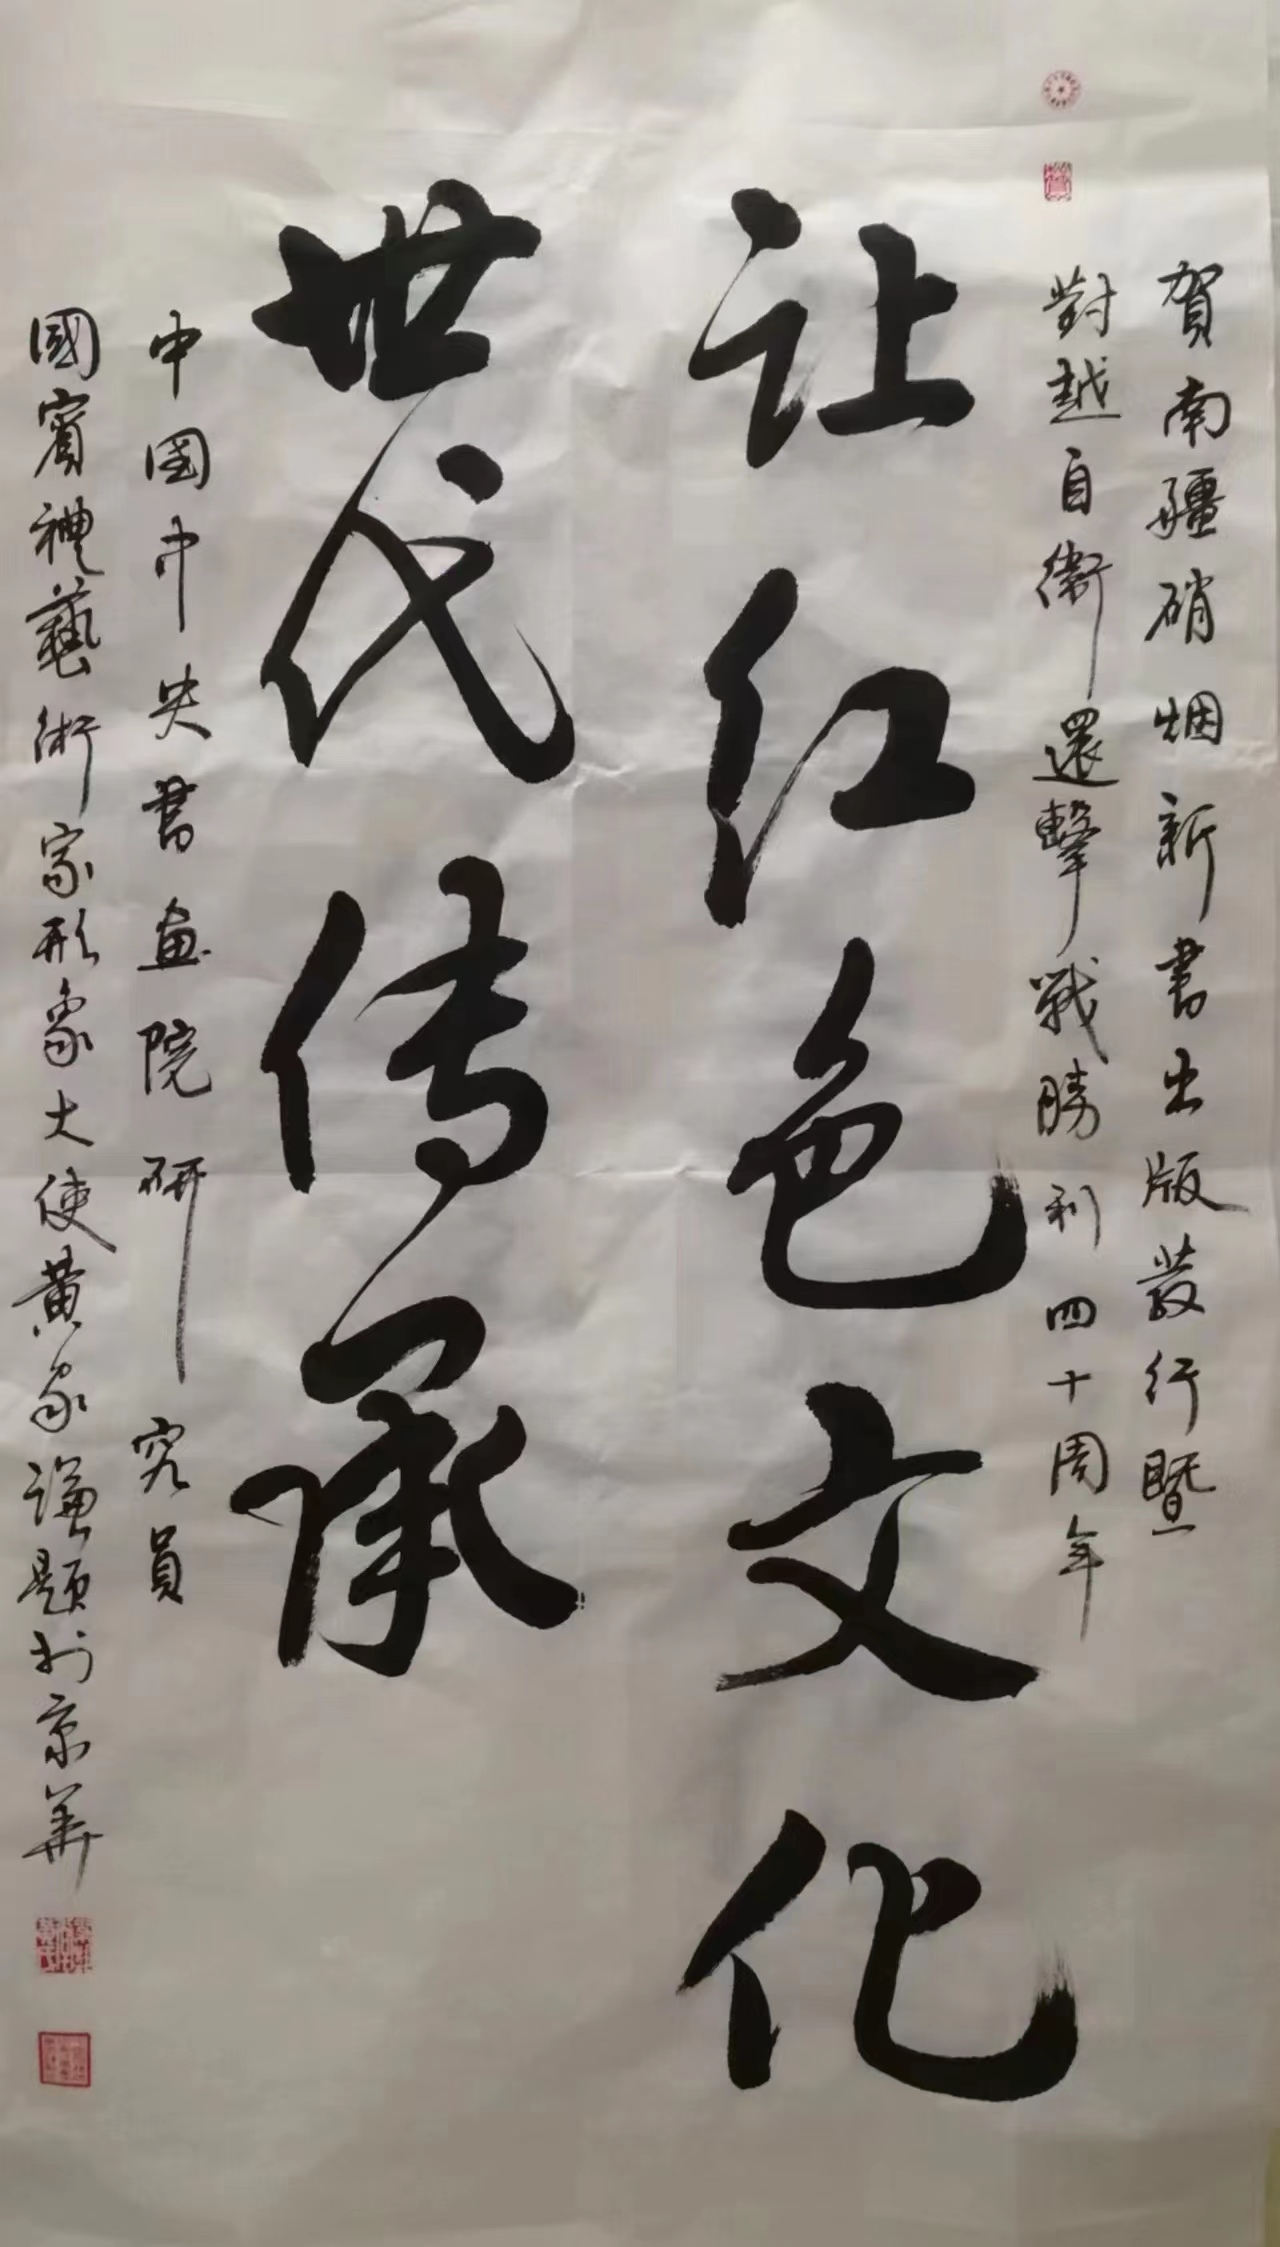 賀南疆硝烟新書出版發行暨
對越自衛還擊戰勝利四十周年
让红色文化
世代传承
中国中央書画院研究員
國賓禮藝術家形象大使黄家謙題於京華